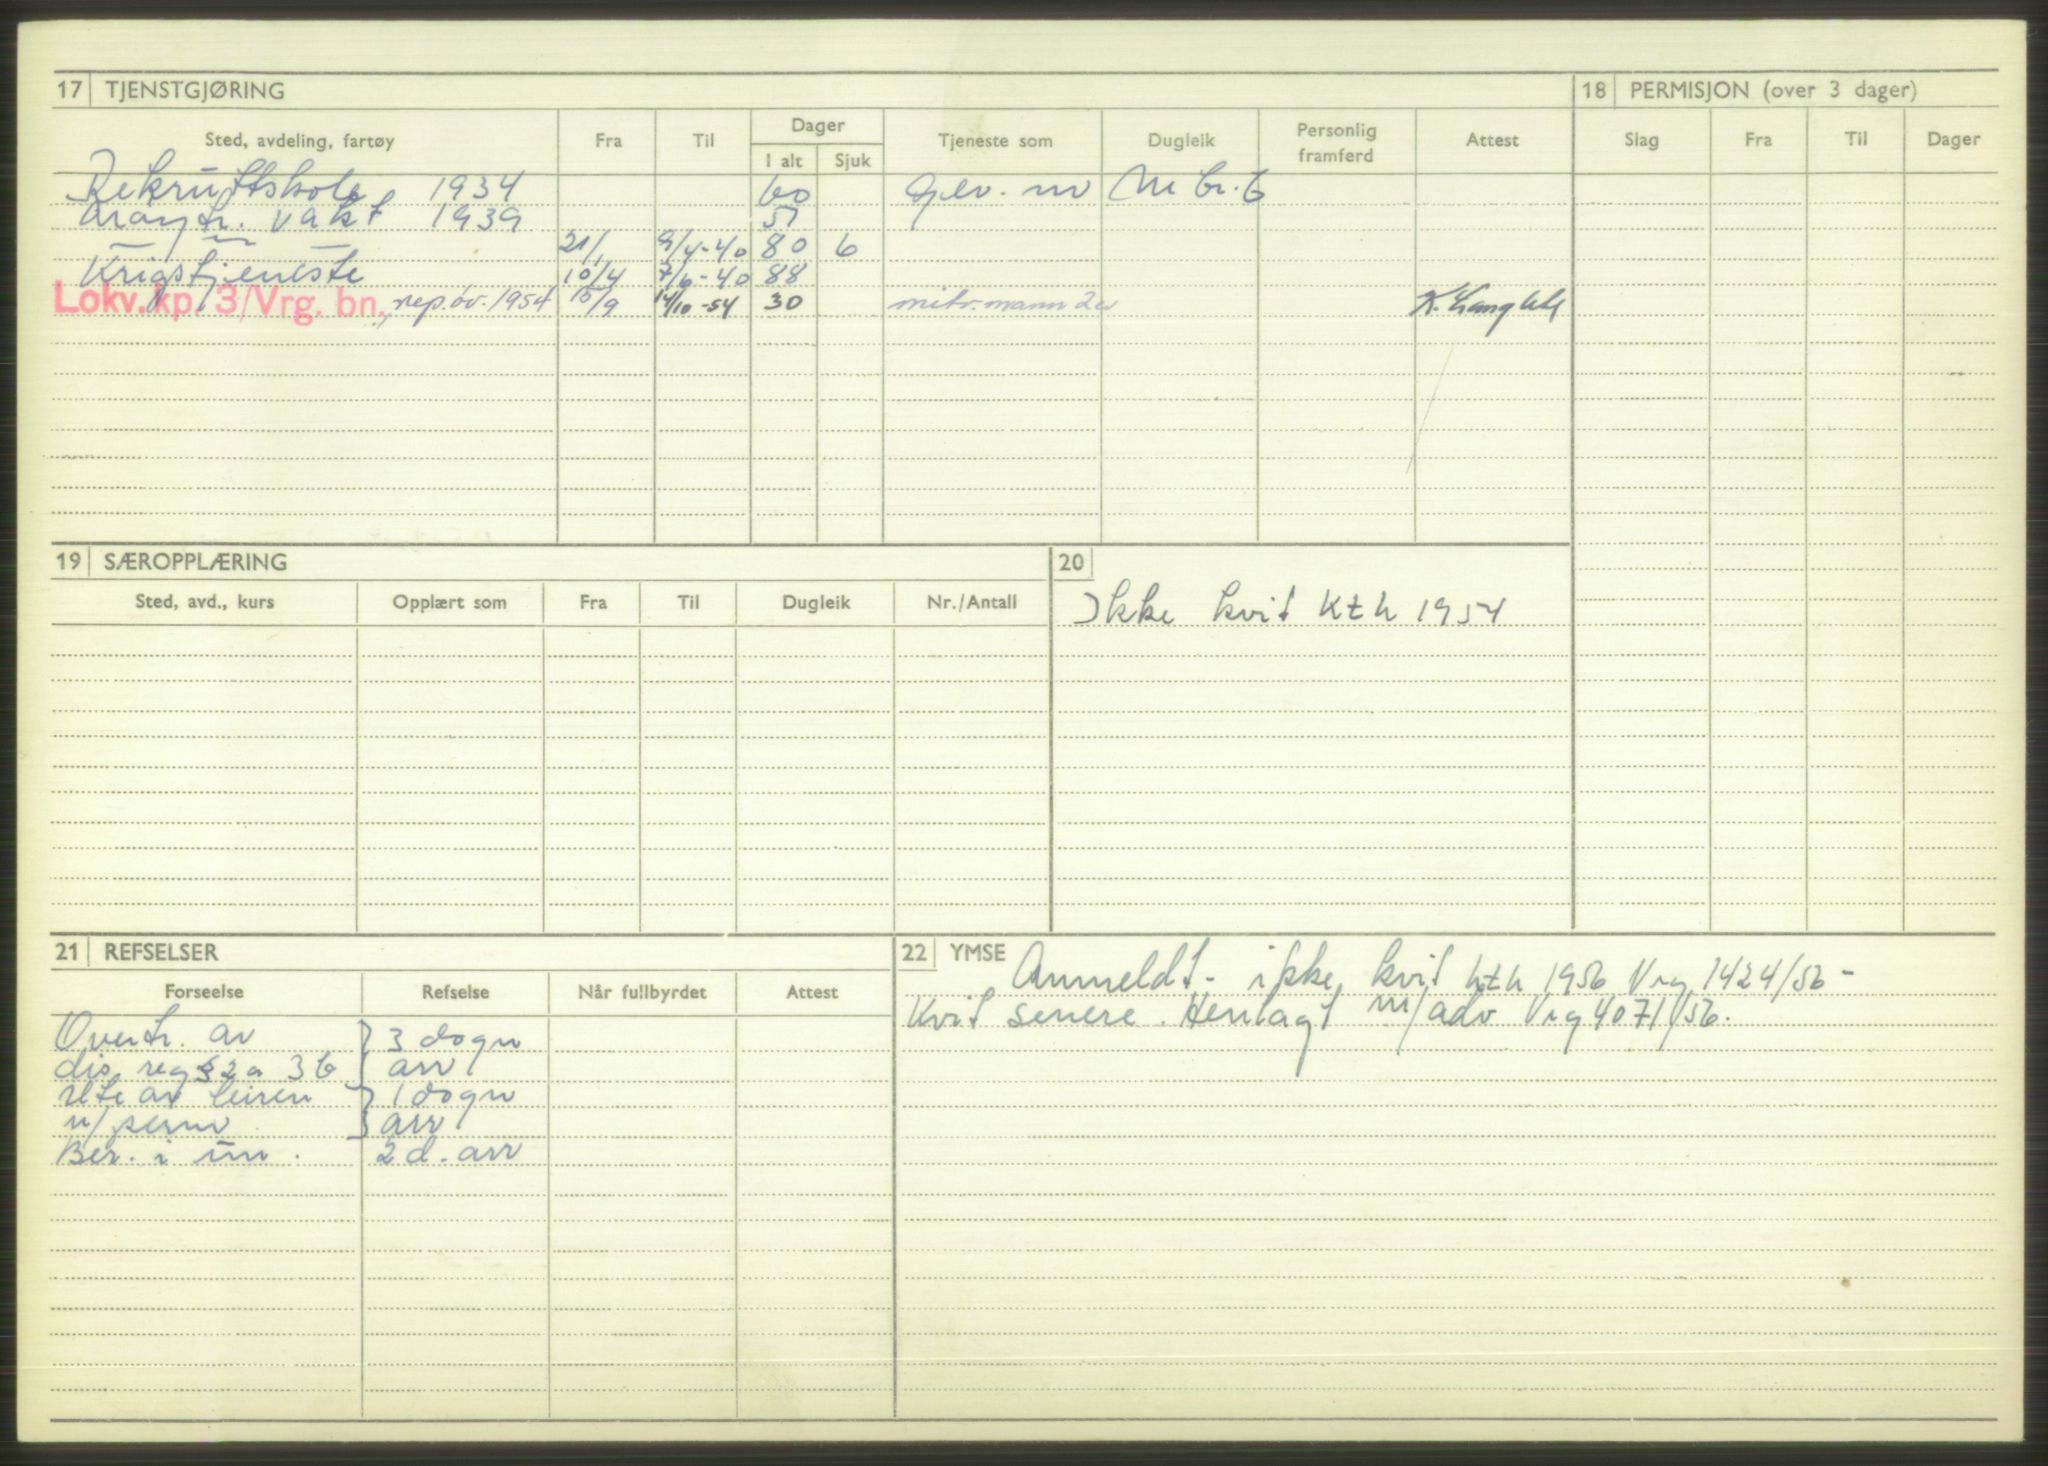 17 TJENSTGJØRING
18 PERMISJON (over 3 dager)
Sted, avdeling, fartøy Fra Til Dager I alt Sjuk Tjeneste som Dugleik Personlig framferd Attest
Slag Fra Til Dager
Rekruttskole 1934 60 M br. b
vakt 1939 51
21/1 9/4-40 80 6
Krigstjeneste 10/4 7/6-40 88
Lokv. kp. 3/Vrg. bn., rep.øv. 1954 15/9 14/10-54 30 mitr.mann
19 SÆROPPLÆRING
Sted, avd., kurs Opplært som Fra Til Dugleik Nr./Antall
20
Ikke kvit Kth 1954
21 REFSELSER
Forseelse Refselse Når fullbyrdet Attest
Overtr. av 3 døgn
dis. reg § 2a 3b arr
ute av leiren 1 døgn
u/perm arr
Ber. i un. 2 d. arr
22 YMSE
Anmeldt - ikke kvit kth 1956 Vrg 1424/56 -
Kvit senere. Henlagt m/adv Vrg 4071/56.